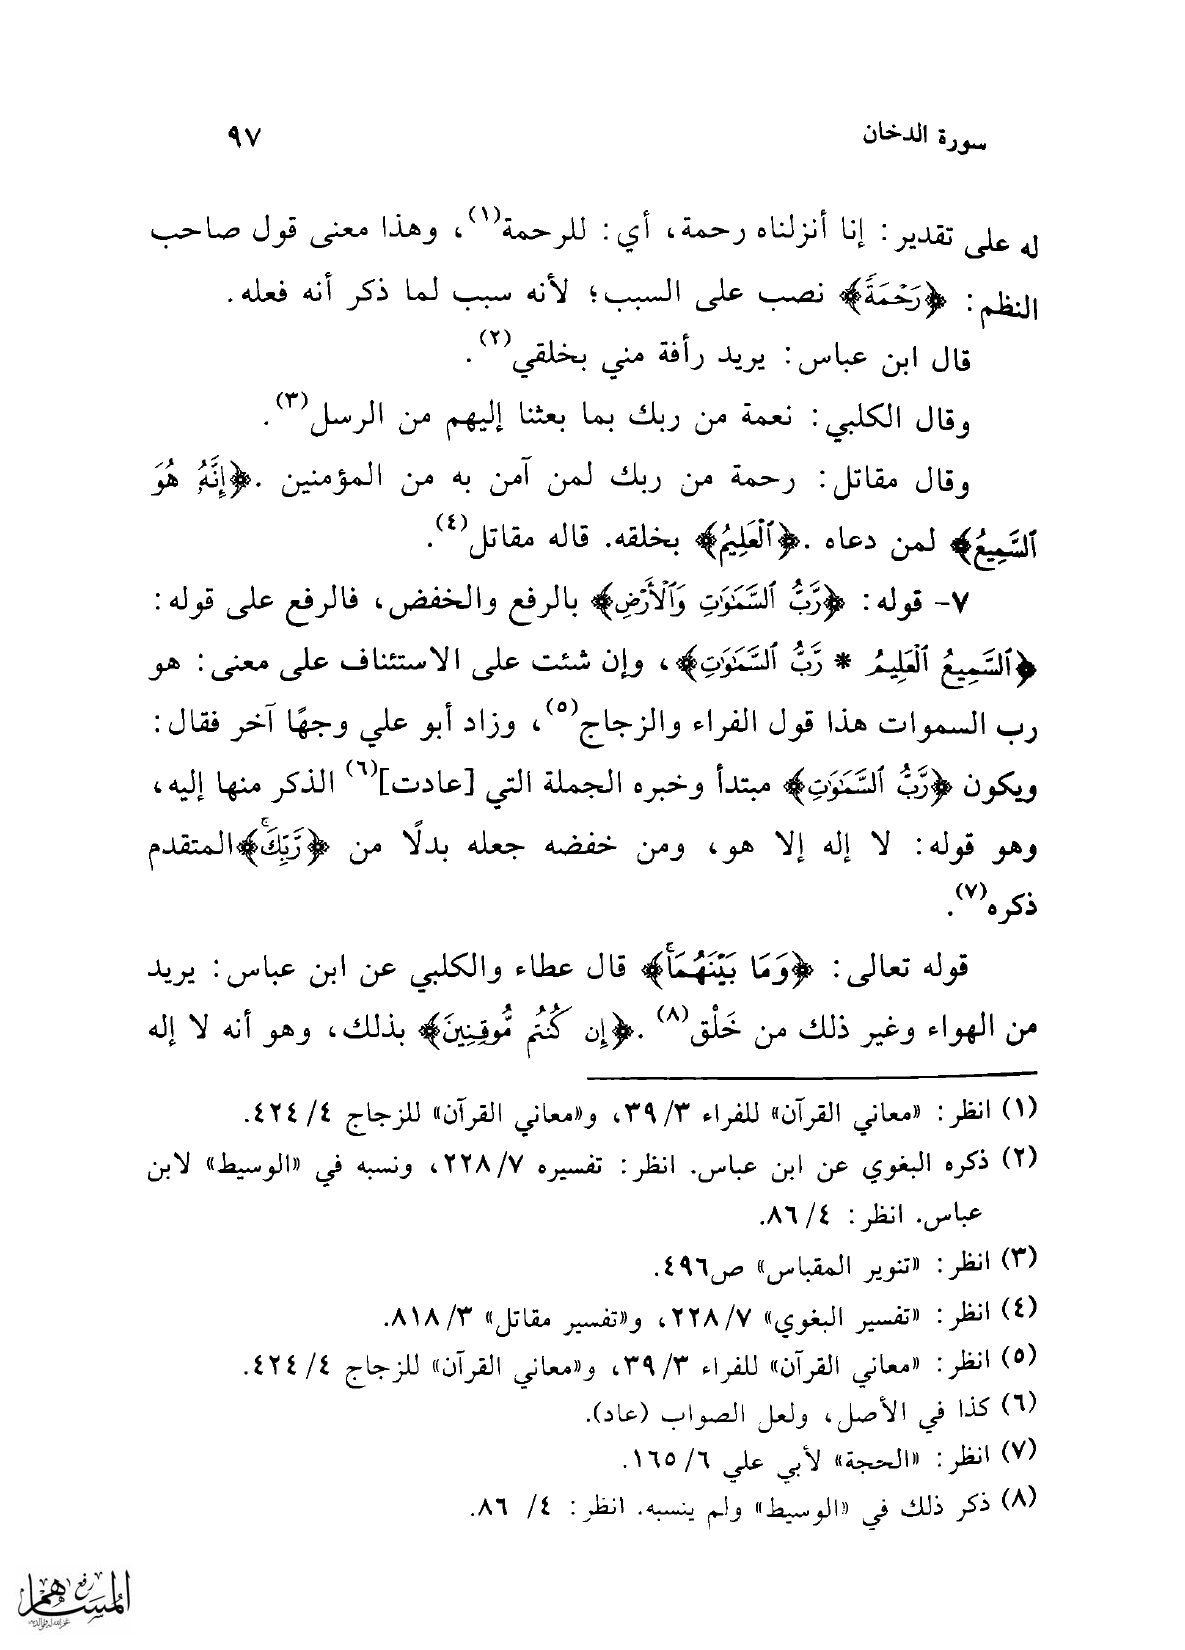 سورة الدخان
٩٧
له على تقدير: إنا أنزلناه رحمة، أي: للرحمة(١)، وهذا معنى قول صاحب
النظم: ﴿رَحْمَةً﴾ نصب على السبب؛ لأنه سبب لما ذكر أنه فعله.
قال ابن عباس: يريد رأفة مني بخلقي(٢).
وقال الكلبي: نعمة من ربك بما بعثنا إليهم من الرسل(٣).
وقال مقاتل: رحمة من ربك لمن آمن به من المؤمنين .﴿إِنَّهُۥ هُوَ
ٱلسَّمِيعُ﴾ لمن دعاه .﴿ٱلْعَلِيمُ﴾ بخلقه. قاله مقاتل(٤).
٧- قوله: ﴿رَّبُّ ٱلسَّمَٰوَٰتِ وَٱلْأَرْضِ﴾ بالرفع والخفض، فالرفع على قوله:
﴿ٱلسَّمِيعُ ٱلْعَلِيمُ * رَّبُّ ٱلسَّمَٰوَٰتِ﴾، وإن شئت على الاستئناف على معنى: هو
رب السموات هذا قول الفراء والزجاج(٥)، وزاد أبو علي وجهًا آخر فقال:
ويكون ﴿رَّبُّ ٱلسَّمَٰوَٰتِ﴾ مبتدأ وخبره الجملة التي [عادت](٦) الذكر منها إليه،
وهو قوله: لا إله إلا هو، ومن خفضه جعله بدلًا من ﴿رَّبِّكَۚ﴾المتقدم
ذكره(٧).
قوله تعالى: ﴿وَمَا بَيْنَهُمَآۚ﴾ قال عطاء والكلبي عن ابن عباس: يريد
من الهواء وغير ذلك من خَلْق(٨) .﴿إِن كُنتُم مُّوقِنِينَ﴾ بذلك، وهو أنه لا إله
(١) انظر: «معاني القرآن» للفراء ٣/ ٣٩، و«معاني القرآن» للزجاج ٤/ ٤٢٤.
(٢) ذكره البغوي عن ابن عباس. انظر: تفسيره ٧/ ٢٢٨، ونسبه في «الوسيط» لابن
عباس. انظر: ٤/ ٨٦.
(٣) انظر: «تنوير المقباس» ص٤٩٦.
(٤) انظر: «تفسير البغوي» ٧/ ٢٢٨، و«تفسير مقاتل» ٣/ ٨١٨.
(٥) انظر: «معاني القرآن» للفراء ٣/ ٣٩، و«معاني القرآن» للزجاج ٤/ ٤٢٤.
(٦) كذا في الأصل، ولعل الصواب (عاد).
(٧) انظر: «الحجة» لأبي علي ٦/ ١٦٥.
(٨) ذكر ذلك في «الوسيط» ولم ينسبه. انظر: ٤/ ٨٦.
رفع
المساهم